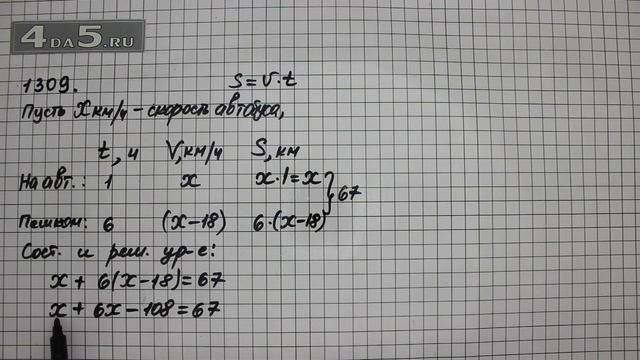 4DA5.RU
1309. S = V·t
Пусть X км/ч – скорость автобуса,
t, ч V, км/ч S, км
На авт.: 1 x x·1=x
67
Пешком: 6 (x–18) 6·(x–18)
Сост. и реш. ур-е:
x + 6(x–18)=67
x + 6x – 108 = 67